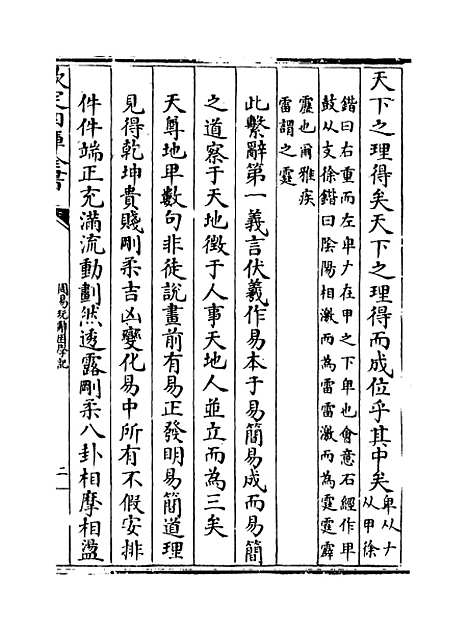 天下之理得矣天下之理得而成位乎其中矣卑从𠂇从甲徐
鍇曰右重而左卑𠂇在甲之下卑也會意石經作𤰞
鼓从支徐鍇曰陰陽相激而為雷雷激而為霆霆霹
靂也爾雅疾
雷謂之霆
此繫辭第一義言伏羲作易本于易簡易成而易簡
之道察于天地徵于人事天地人並立而為三矣
天尊地卑數句非徒說畫前有易正發明易簡道理
見得乾坤貴賤剛柔吉凶變化易中所有不假安排
件件端正充滿流動劃然透露剛柔八卦相摩相盪
欽定四庫全書
周易玩辭困學記
二